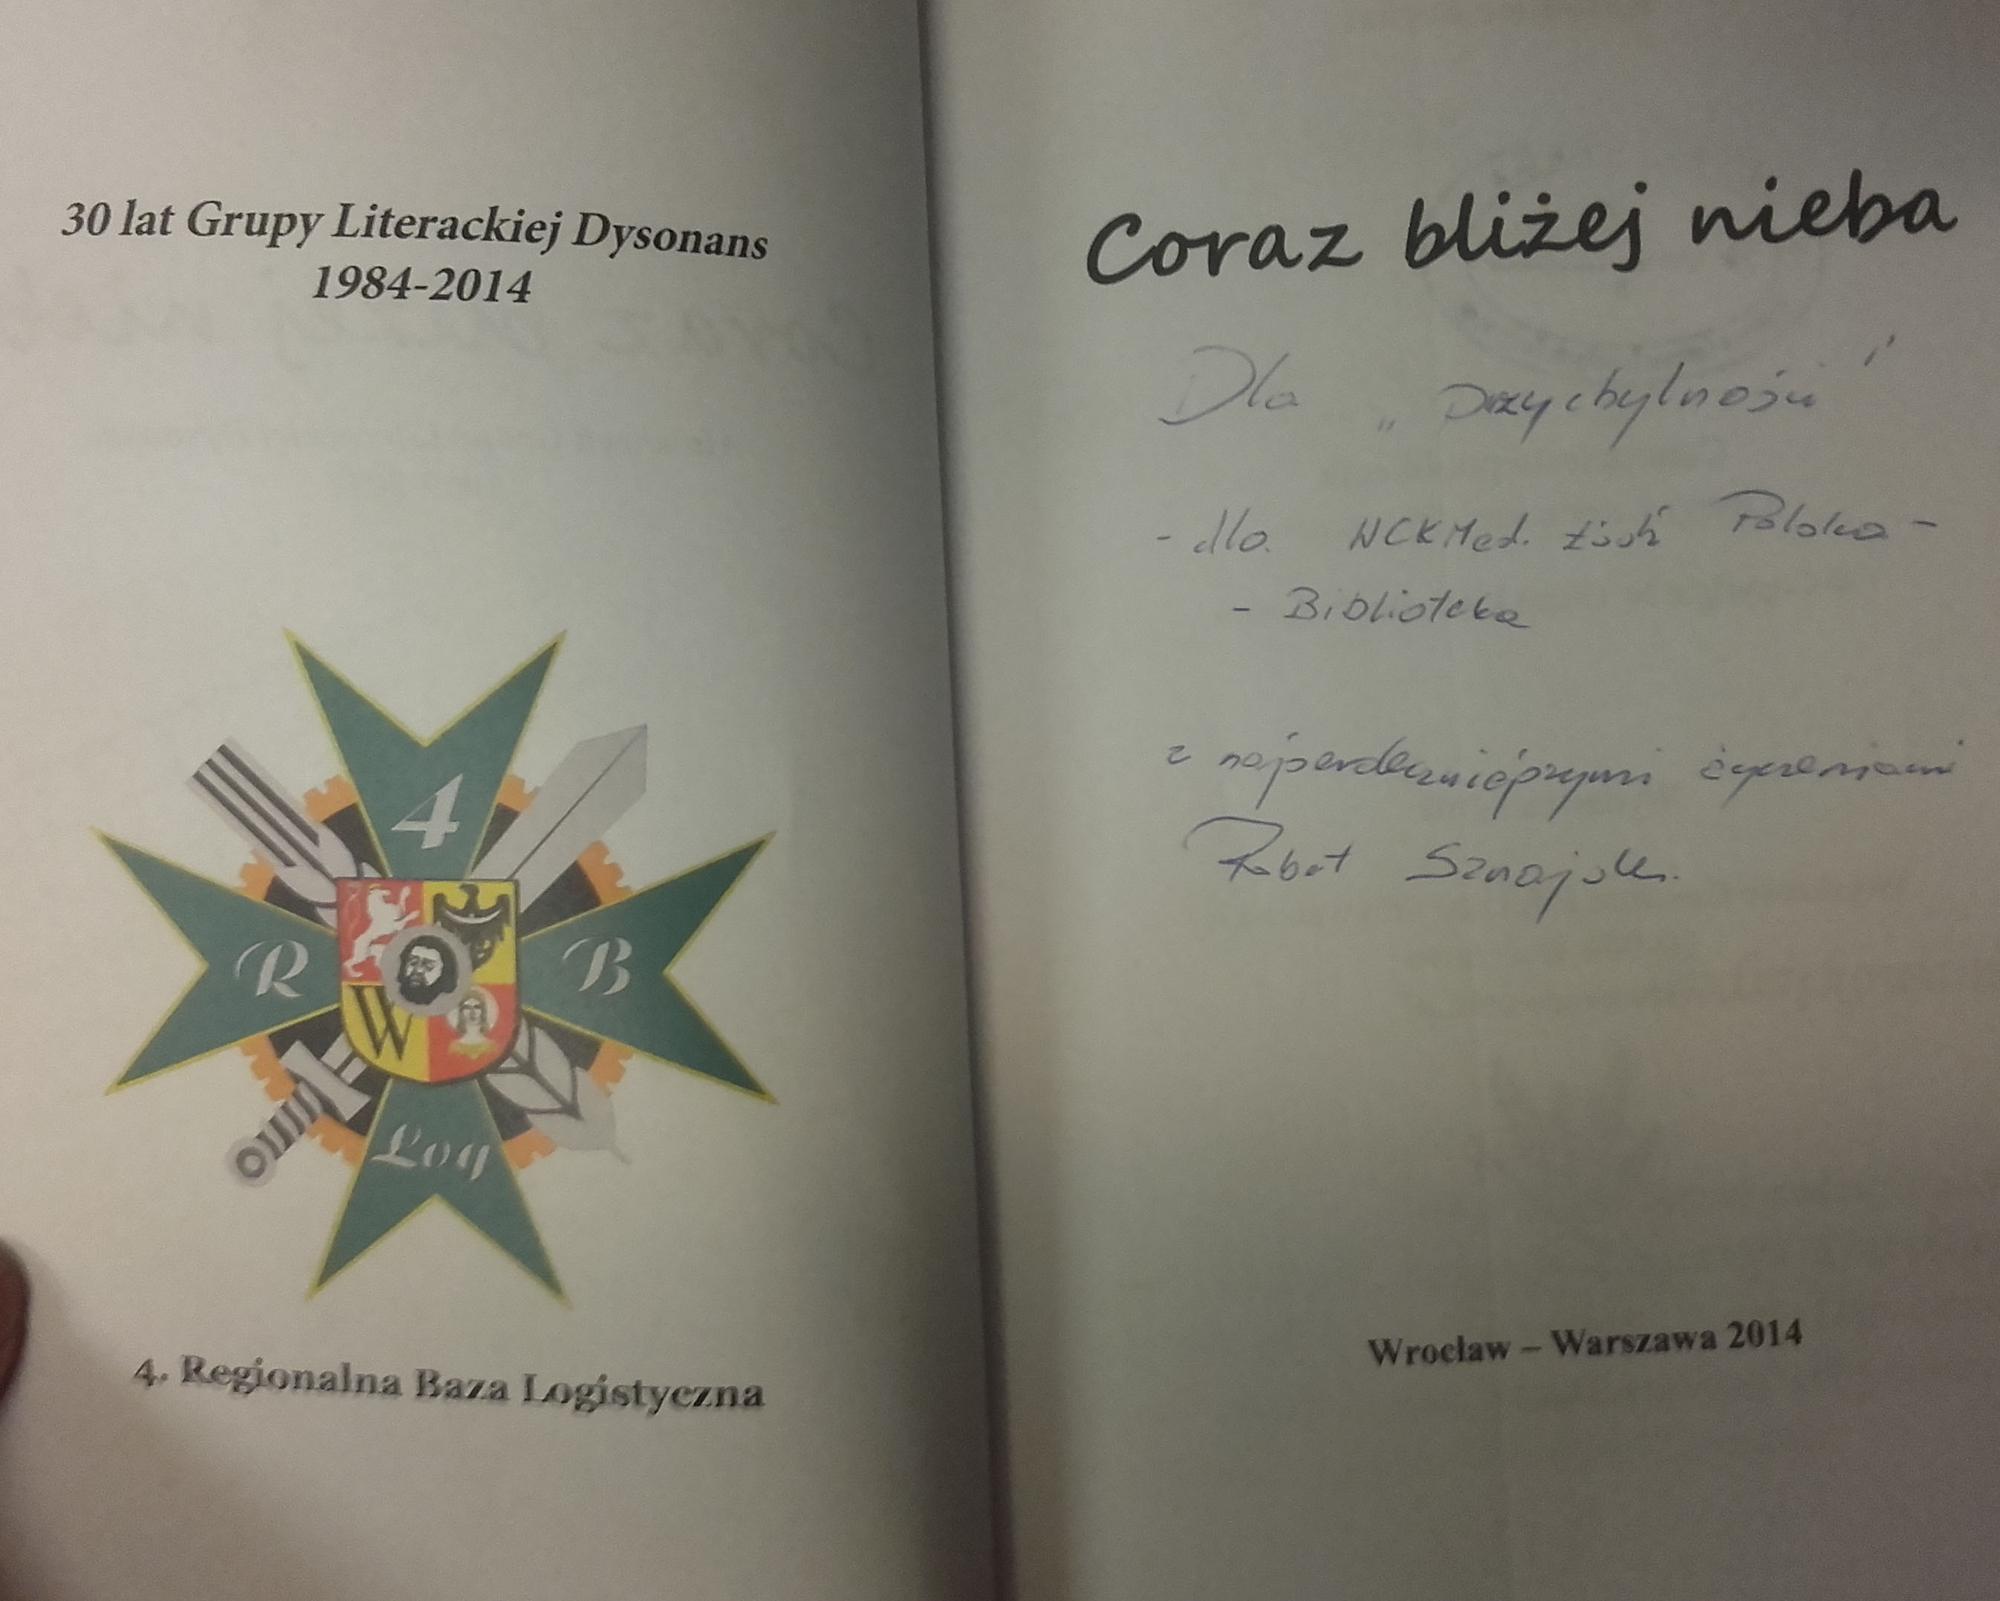 30 lat Grupy Literackiej Dysonans
1984-2014
4
R
B
W
Log
4. Regionalna Baza Logistyczna
Coraz bliżej nieba
Dla „Przychylności”
- dla Polska -
- Biblioteka
z najserdeczniejszymi życzeniami
Robert
Wrocław – Warszawa 2014